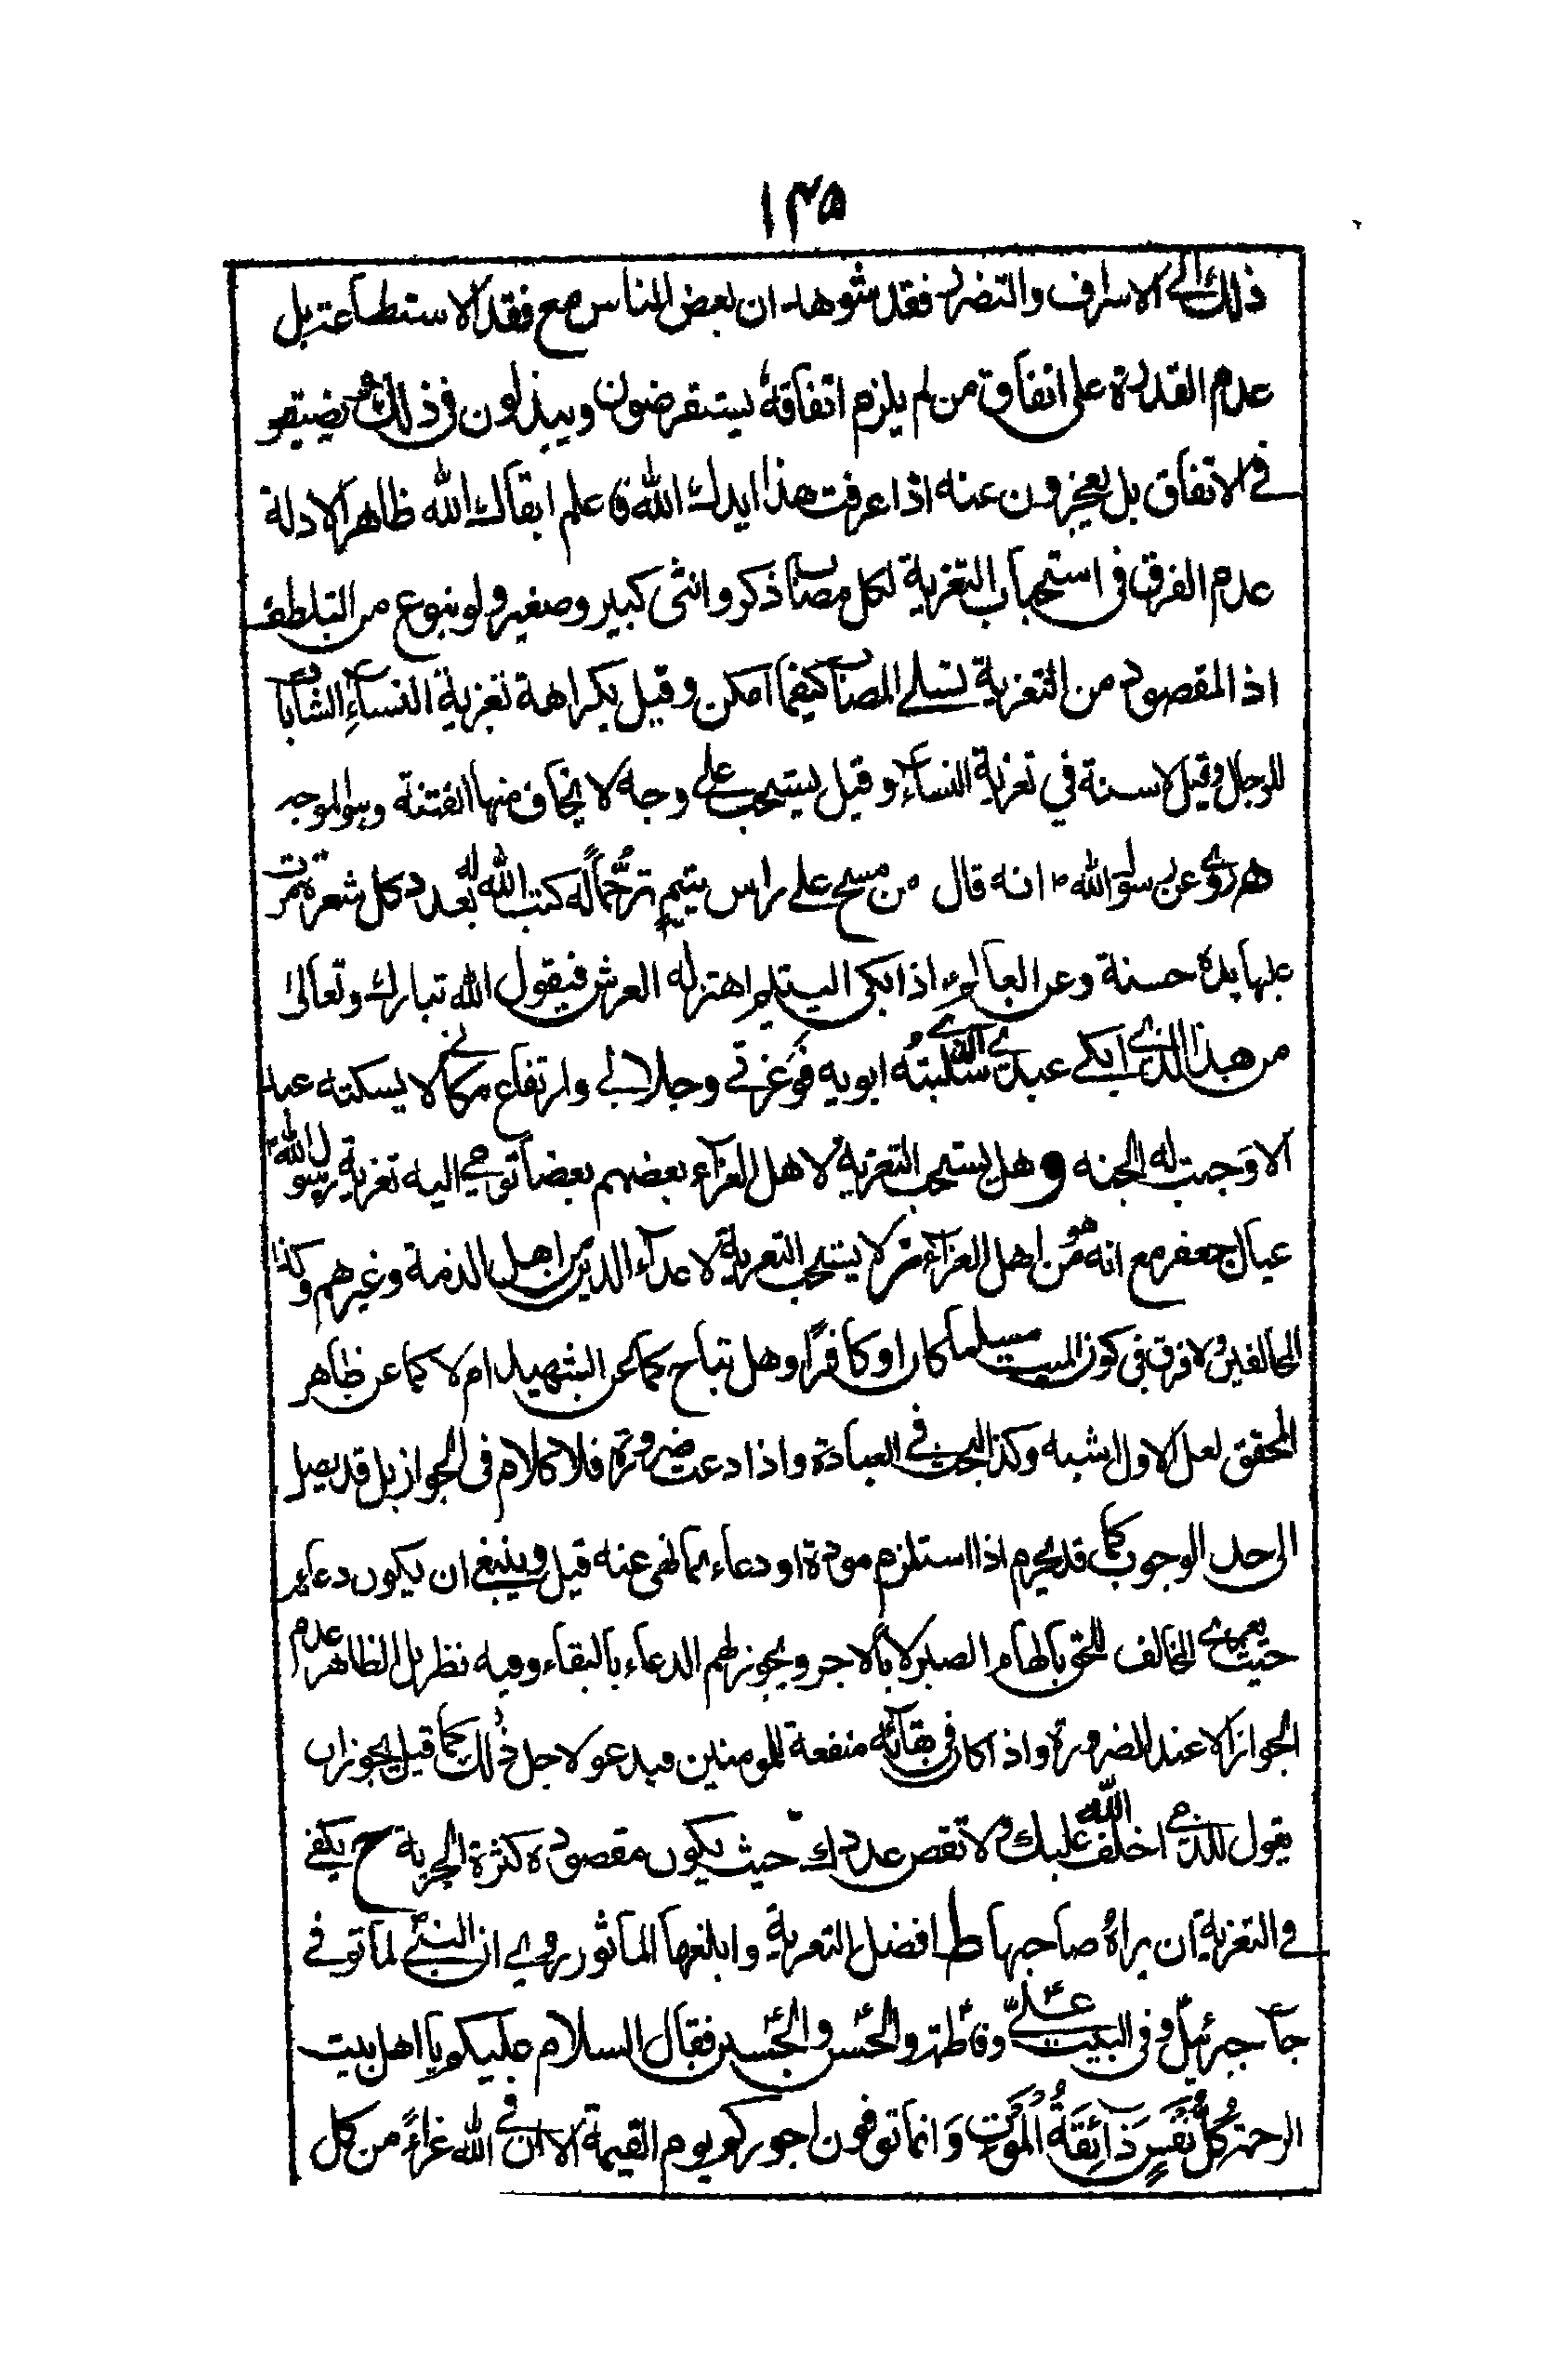 ١٣٥
ذلك الى الاسراف والتضرر فقد شوهد ان بعض الناس مع فقد الاستطاعته بل
عدم القدرة على انفاق من لم يلزم انفاقه يستقرضون ويبذلون في ذلك ثم يضيقو
في الانفاق بل يعجزون عنه اذا عرفت هذا ايدك الله فاعلم ابقاك الله ظاهر الادلة
عدم الفرق في استحباب التعزية لكل مصاب ذكر وانثى كبير وصغير ولو بنوع من التلطف
اذ المقصود من التعزية تسلى المصاب كيفما امكن وقيل بكراهة تعزية النساء الشابات
للرجال وقيل لا سنة في تعزية النساء وقيل يستحب على وجه لا يخاف منها الفتنة وهو الموجه
روى عن رسول الله انه قال من مسح على راس يتيم ترحما له كتب الله له بعدد كل شعرة مرت
عليها يده حسنة وعن العالم اذا بكى اليتيم اهتز له العرش فيقول الله تبارك وتعالى
من هذا الذى ابكى عبدى الذى سلبته ابويه فو عزتي وجلالي وارتفاع مكانى لا يسكته عبد
الا وجبت له الجنه وهل يستحب التعزية لاهل العزاء بعضهم بعضا توحي اليه تعزية رسول الله
عيال جعفر مع انه هو من اهل العزاء ثم لا يستحب التعزية لاعداء الدين من اهل الذمة وغيرهم وكذا
المخالفين ولا فرق في كون الميت مسلما كان او كافرًا وهل تباح كما عن الشهيد ام لا كما عن ظاهر
المحقق لعل الاول اشبه وكذا البحث في العيادة واذا دعت ضرورة فلا كلام في الجواز بل قد يصل
الى حد الوجوب كما قد يحرم اذا استلزم مودة او دعاء بما نهى عنه قيل وينبغي ان يكون دعاء
حيث يعزى المخالف للحق بالهام الصبر لا بالاجر ويجوز لهم الدعاء بالبقاء وفيه نظر بل الظاهر عدم
الجواز الا عند الضرورة واذا كان في بقائه منفعة للمومنين فيدعو لاجل ذلك كما قيل يجوز ان
يقول للذمي اخلف الله عليك ولا نقص عددك حيث يكون مقصوده كثرة الجزية ح يكفى
في التعزية ان يراه صاحبها ط افضل التعزية وابلغها الماثور روى ان النبي لما توفى
جاء جبرئيل وفى البيت علىّ وفاطمة والحسن والحسين فقال السلام عليكم يا اهل بيت
الرحمة كُلُّ نَفْسٍ ذَآئِقَةُ الْمَوْتِ وَانما توفون اجوركم يوم القيمة الا ان في الله عزاءً من كل